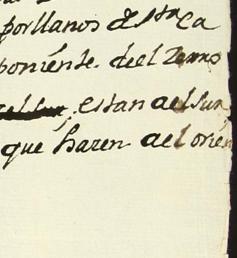 por llanos de
poniente. de el
estan a el sur
que hazen a el orien